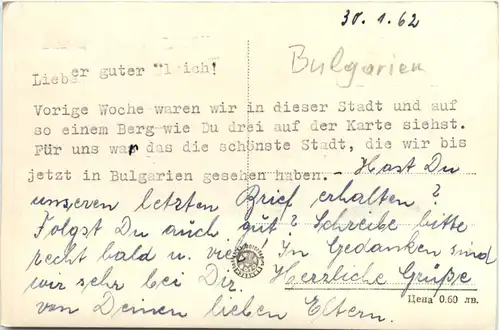 30.1.62
Bulgarien
Lieber guter
Vorige Woche waren wir in dieser Stadt und auf
so einem Berg wie Du drei auf der Karte siehst.
Für uns war das die schönste Stadt, die wir bis
jetzt in Bulgarien gesehen haben. – Hast Du
unseren letzten Brief erhalten?
Folgst Du auch gut? Schreibe bitte
recht bald u. viel! In Gedanken sind
wir sehr bei Dir. Herzliche Grüße
von Deinen lieben Eltern.
Цена 0.60 лв.